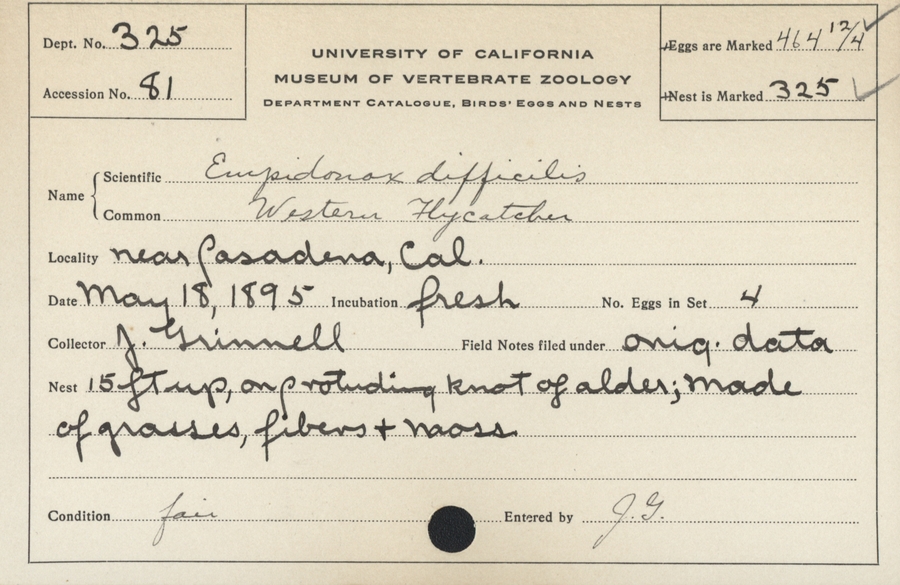 Dept. No. 325
Accession No. 81
UNIVERSITY OF CALIFORNIA
MUSEUM OF VERTEBRATE ZOOLOGY
DEPARTMENT CATALOGUE, BIRDS' EGGS AND NESTS
Eggs are Marked 464 12/4
Nest is Marked 325
Name
Scientific Empidonax difficilis
Common Western Flycatcher
Locality near Pasadena, Cal.
Date May 18, 1895 Incubation fresh No. Eggs in Set 4
Collector J. Grinnell Field Notes filed under orig. data
Nest 15 ft up, on protuding knot of alder; made
of grasses, fibers + moss
Condition fair Entered by J.G.